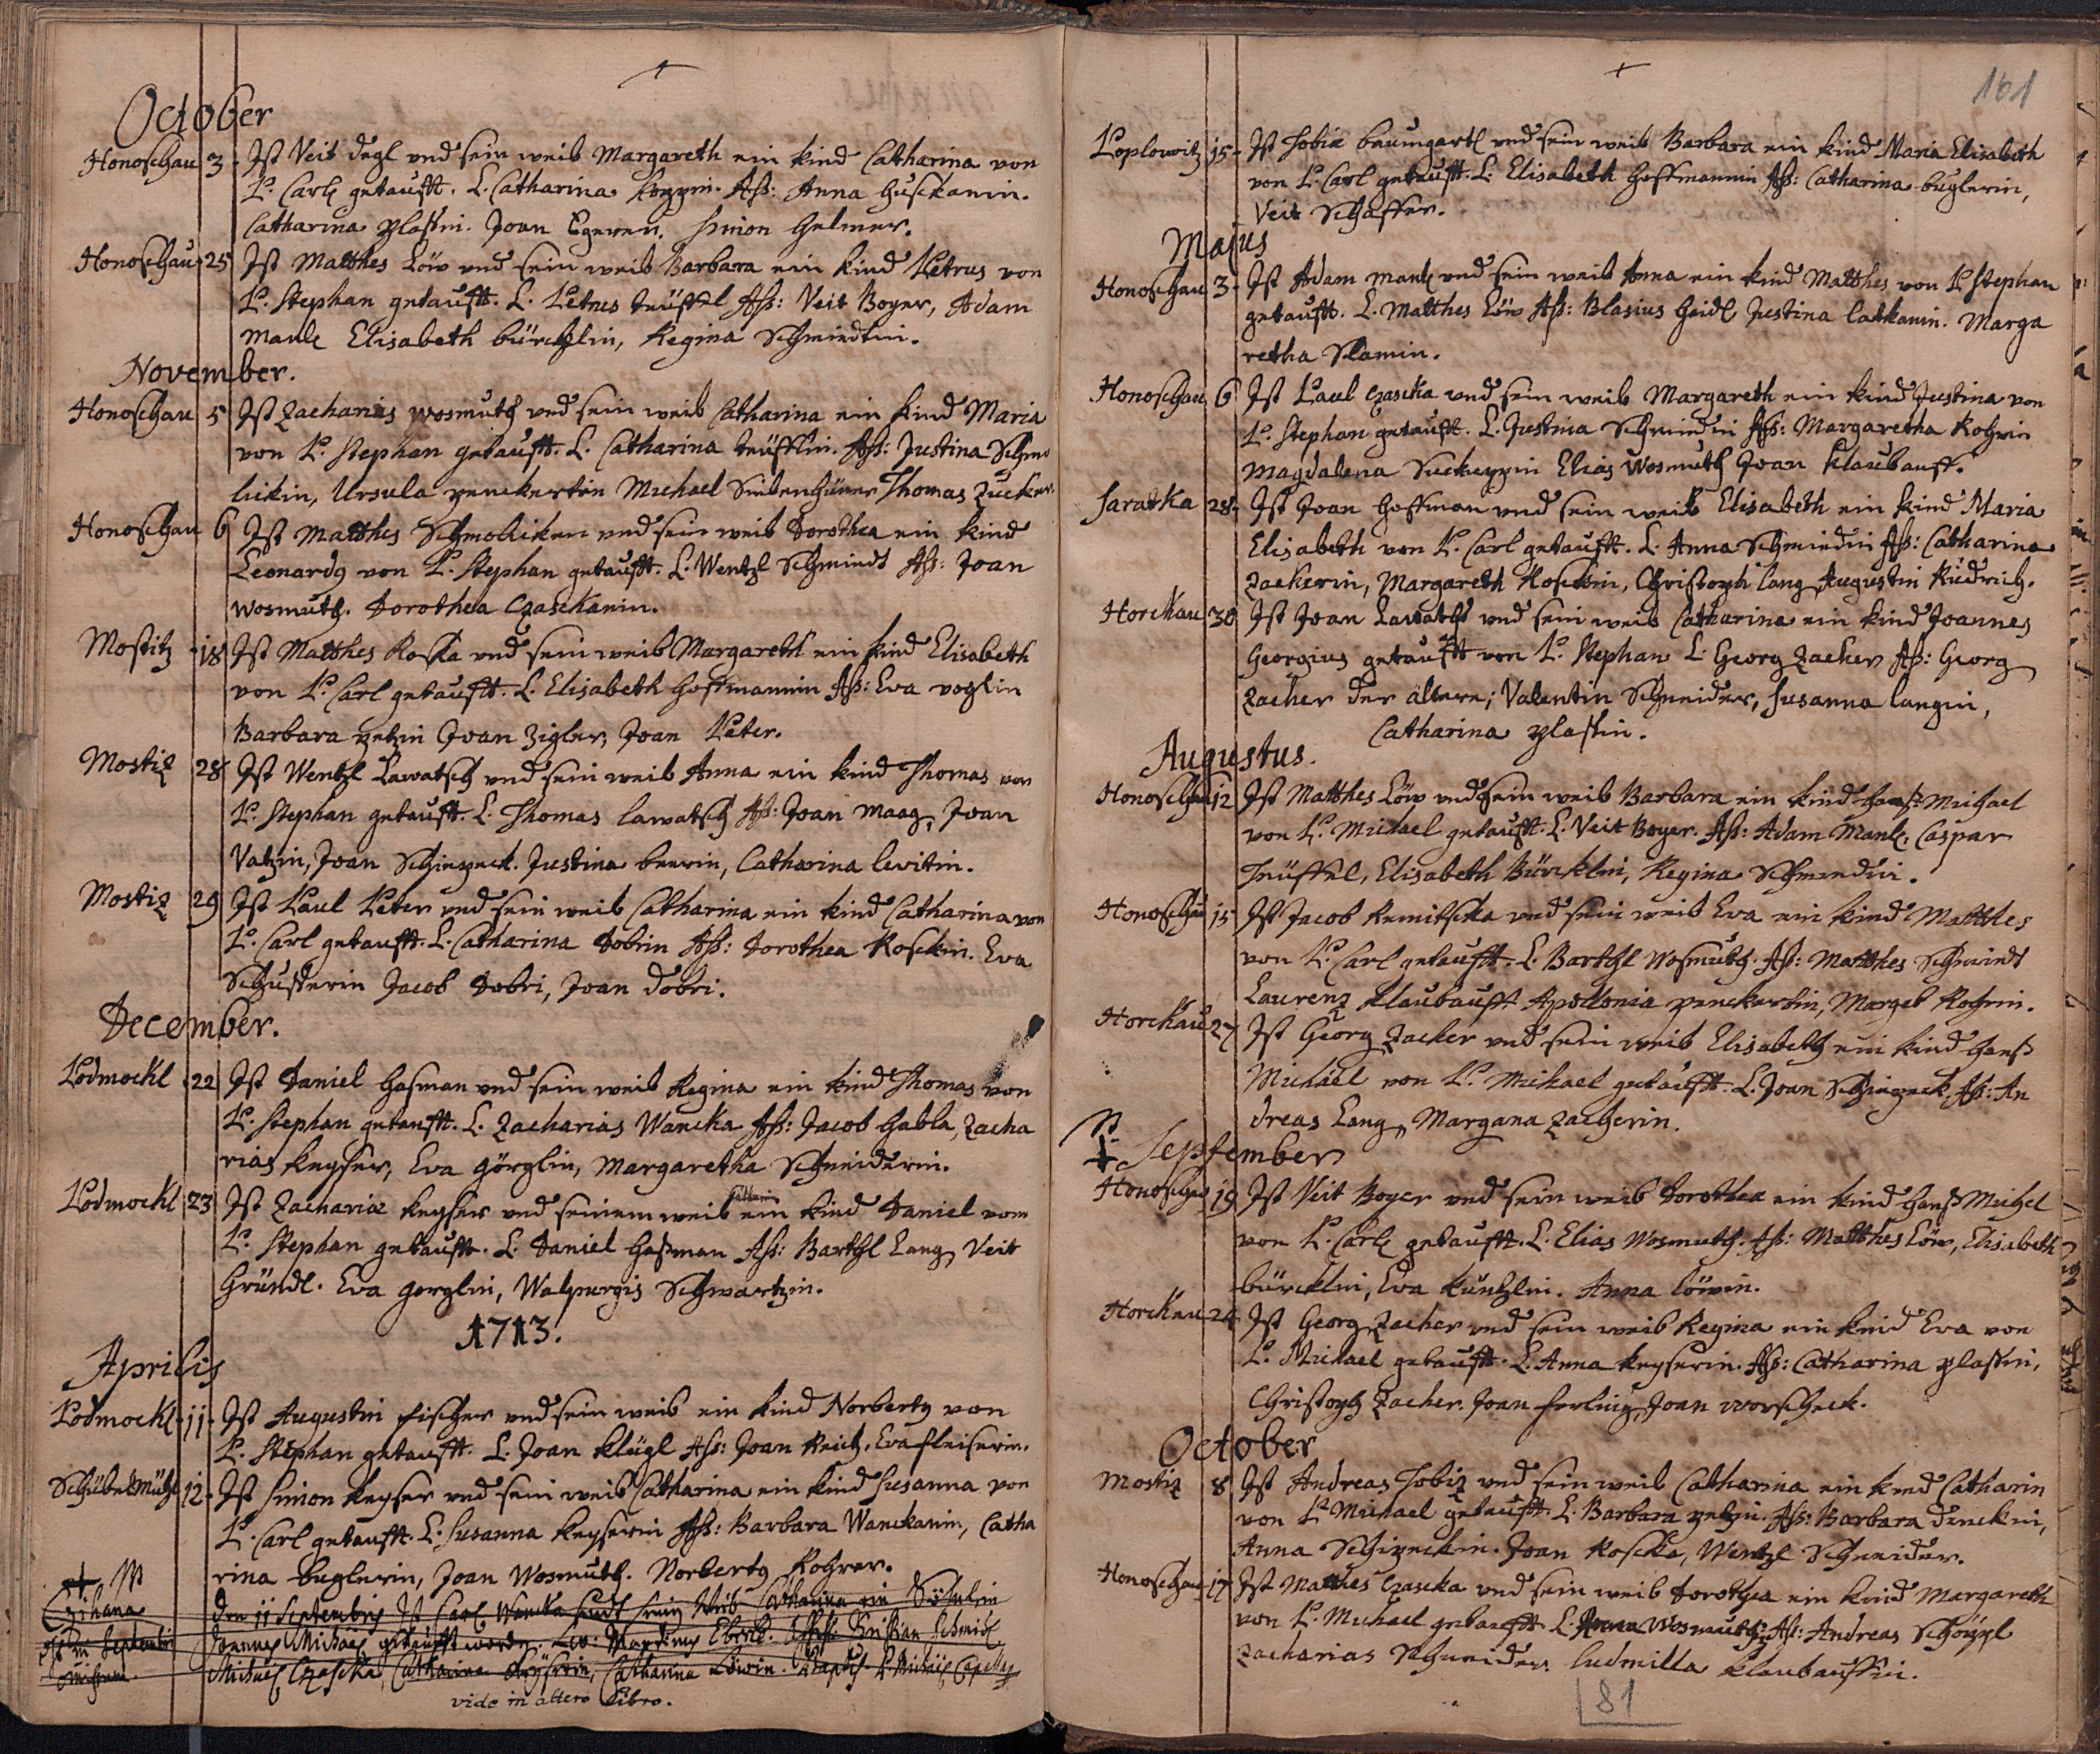 October
Honoschau 3. Ist Veit degl und sein weib Margareth ein kind Catharina von
P. Carl getaufft. L. Catharina Aß: Anna Huschkanin.
Catharina plaßin. Joan Egerer. Simon Helmer.
Honoschau 25 Ist Matthes Löw und sein weib Barbara ein kind Petrus von
P. Stephan getaufft. L. Petrus teüffel Aß: Veit Boyer, Adam
Manl Elisabeth bürcklin, Regina Schmiedtin.
November.
Honoschau 5 Ist Zacharias wosmuth und sein weib Catharina ein kind Maria
von P. Stephan getaufft. L. Catharina teüfflin. Aß: Justina Schmo
lickin, Ursula penckertin Michael Siebenhüner Thomas Zucker.
Honoschau 6 Ist Matthes Schmolicker und sein weib Dorothea ein kind
Leonardg von P. Stephan getaufft. L. Wentzl Schmiedt Aß: Joan
Wosmuth. Dorothea Czasckanin.
Mostitz 18 Ist Matthes Koska und sein weib Margareth ein kind Elisabeth
von P. Carl getaufft. L. Elisabeth Hoffmannin Aß: Eva voglin
Barbara petzin Joan Zigler, Joan Peter.
Mostiz 28 Ist Wentzl Lawatsch und sein weib Anna ein kind Thomas von
P. Stephan getaufft. L. Thomas lawatsch Aß: Joan Maag, Joan
Vatzin, Joan Schinpeck. Justina beerin, Catharina lewitin.
Mostiz 29 Ist Paul Peter und sein weib Catharina ein kind Catharina von
P. Carl getaufft. L. Catharina Dobrin Aß: Dorothea Koschin. Eva
Schusterin Jacob Dobri, Joan Dobri.
December.
Podmockl 22 Ist Daniel Haßman und sein weib Regina ein kind Thomas von
P. Stephan getaufft. L. Zacharias Wancka Aß: Jacob Habla, Zacha
rias keyser, Eva görglin, Margaretha Schneiderin.
Podmockl 23 Ist Zachariæ keyser und seinem weib ein kind Daniel vom
P. Stephan getaufft. L. Daniel Haßman Aß: Barthl Lang, Veit
Gründl. Eva gerglin, Walpurgis Schwartzin.
1713.
Aprilis
Podmockl 11. Ist Augustin fischer und sein weib ein kind Norbertg von
P. Stephan getaufft. L. Joan klügl Aß: Joan Reich, Eva fleiserin.
12. Ist Simon keyser und sein weib Catharina ein kind Susanna von
P. Carl getaufft. L. Susanna keyserin Aß: Barbara Wanckanin, Catha
rina beglerin, Joan Wosmuth. Norbertg Rohrer.
Czihana den 11 Septembris Ist Carl Wancka sein Weib Catharina ein Söhnlein
Joannes Michael getaufft worden. Lev: Martinus Eberl. Christian Schmid
Michael Czaschka, Catharina Keyserin, Catharina Löwin. P. Michael Capellan
vide in altero Libro.
161
Poplowitz 15. Ist Tobiæ baumgartl und sein weib Barbara ein kind Maria Elisabeth
von P. Carl getaufft. L. Elisabeth Hoffmannin Aß: Catharina beglerin,
Veit Schaffer.
Majus
Honoschau 3. Ist Adam manl und sein weib Anna ein kind Matthes von P. Stephan
getaufft. L. Matthes Löw Aß: Blasius Heidl Justina latkanin. Marga
retha Slamin.
Honoschau 6 Ist Paul Czascka und sein weib Margareth ein kind Justina von
P. Stephan getaufft. L. Justina Schmiedin Aß: Margaretha Rohrin
Magdalena Elias Wosmuth Joan klaubauff.
Saratka 28. Ist Joan Hoffman und sein weib Elisabeth ein kind Maria
Elisabeth von P. Carl getaufft. L. Anna Schmiedin Aß: Catharina
Zackerin, Margareth Koschin, Christoph lang Augustin Rüdrich.
Horckau 30 Ist Joan Lawatsch und sein weib Catharina ein kind Joannes
Georgius getaufft von P. Stephan L. Georg Zacher Aß: Georg
Zacher der ältere; Valentin Schneider, Susanna langin,
Catharina plaßin.
Augustus.
Honoschau 12 Ist Matthes Löw und sein weib Barbara ein kind Hanß Michael
von P. Michael getaufft. L. Veit Boyer. Aß: Adam Manl, Caspar
Teüffel, Elisabeth Bürcklin, Regina Schmiedin.
Honoschau 15 Ist Jacob Remitscka und sein weib Eva ein kind Matthes
von P. Carl getaufft. L. Barthl Wosmuth. Aß: Matthes Schmiedt
Laurenz klaubauff Apollonia penckertin, Margeb Rohrin.
Horckau 27 Ist Georg Zacker und sein weib Elisabeth ein kind Hanß
Michäel von P. Michael getaufft. L. Joan Schinpeck, Aß: An
dreas Lang, Margana Zacherin.
September
Honoschau 19 Ist Veit Boyer und sein weib Dorothea ein kind Hanß Michel
von P. Carl getaufft. L. Elias Wosmuth. Aß: Matthes Löw, Elisabeth
bürcklin, Eva küntzlin. Anna Löwin.
Horckau 24 Ist Georg Zacher und sein weib Regina ein kind Eva von
P. Michael getaufft. L. Anna keyserin. Aß: Catharina plaßin,
Christoph Zacher. Joan Joan worscheck.
October
Mostiz 8 Ist Andreas Tobiz und sein weib Catharina ein kind Catharin
von P. Michael getaufft. L. Barbara petzin. Aß: Barbara denckin,
Anna Schinpeckin. Joan Koscka, Wentzl Schneider.
Honoschau 17 Ist Matthes Czascka und sein weib Dorothea ein kind Margareth
von P. Michael getaufft. L. Anna Wosmuthin Aß: Andreas Schöppl
Zacharias Schneider. Ludmilla klaubauffin.
81